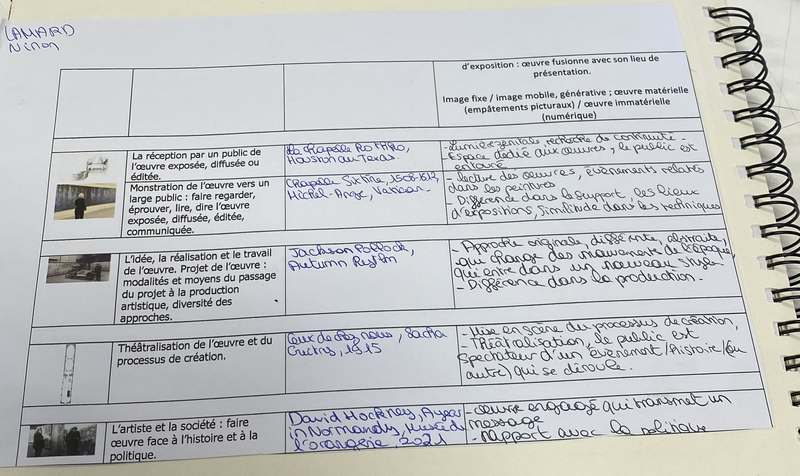 LAMARD
Ninon
d'exposition : œuvre fusionne avec son lieu de
présentation.
Image fixe / image mobile, générative ; œuvre matérielle
(empâtements picturaux) / œuvre immatérielle
(numérique)
La réception par un public de
l'œuvre exposée, diffusée ou
éditée.
La Chapelle Rothko,
Houston au Texas.
- Lumière zénitale recherche de continuité -
- Espace dédié aux œuvres, le public est
entouré
Monstration de l'œuvre vers un
large public : faire regarder,
éprouver, lire, dire l'œuvre
exposée, diffusée, éditée,
communiquée.
Chapelle Sixtine, 1508-1512,
Michel-Ange, Vatican.
- lecture des œuvres, évènements relatés
dans les peintures
- Différence dans le support, les lieux
d'expositions, similitude dans les techniques
L'idée, la réalisation et le travail
de l'œuvre. Projet de l'œuvre :
modalités et moyens du passage
du projet à la production
artistique, diversité des
approches.
Jackson Pollock,
Autumn
- Approche originale, différente, abstraite,
qui change des mouvements de l'époque,
qui entre dans un nouveau style
- Différence dans la production.
Théâtralisation de l'œuvre et du
processus de création.
Ceux de chez nous, Sacha
Guitry, 1915
- Mise en scène du processus de création,
- Théâtralisation, le public est
spectateur d'un évènement/histoire/(ou
autre) qui se déroule.
L'artiste et la société : faire
œuvre face à l'histoire et à la
politique.
David Hockney, A year
in Normandy, Musée de
l'orangerie, 2021
- œuvre engagé qui transmet un
message
- rapport avec la politique